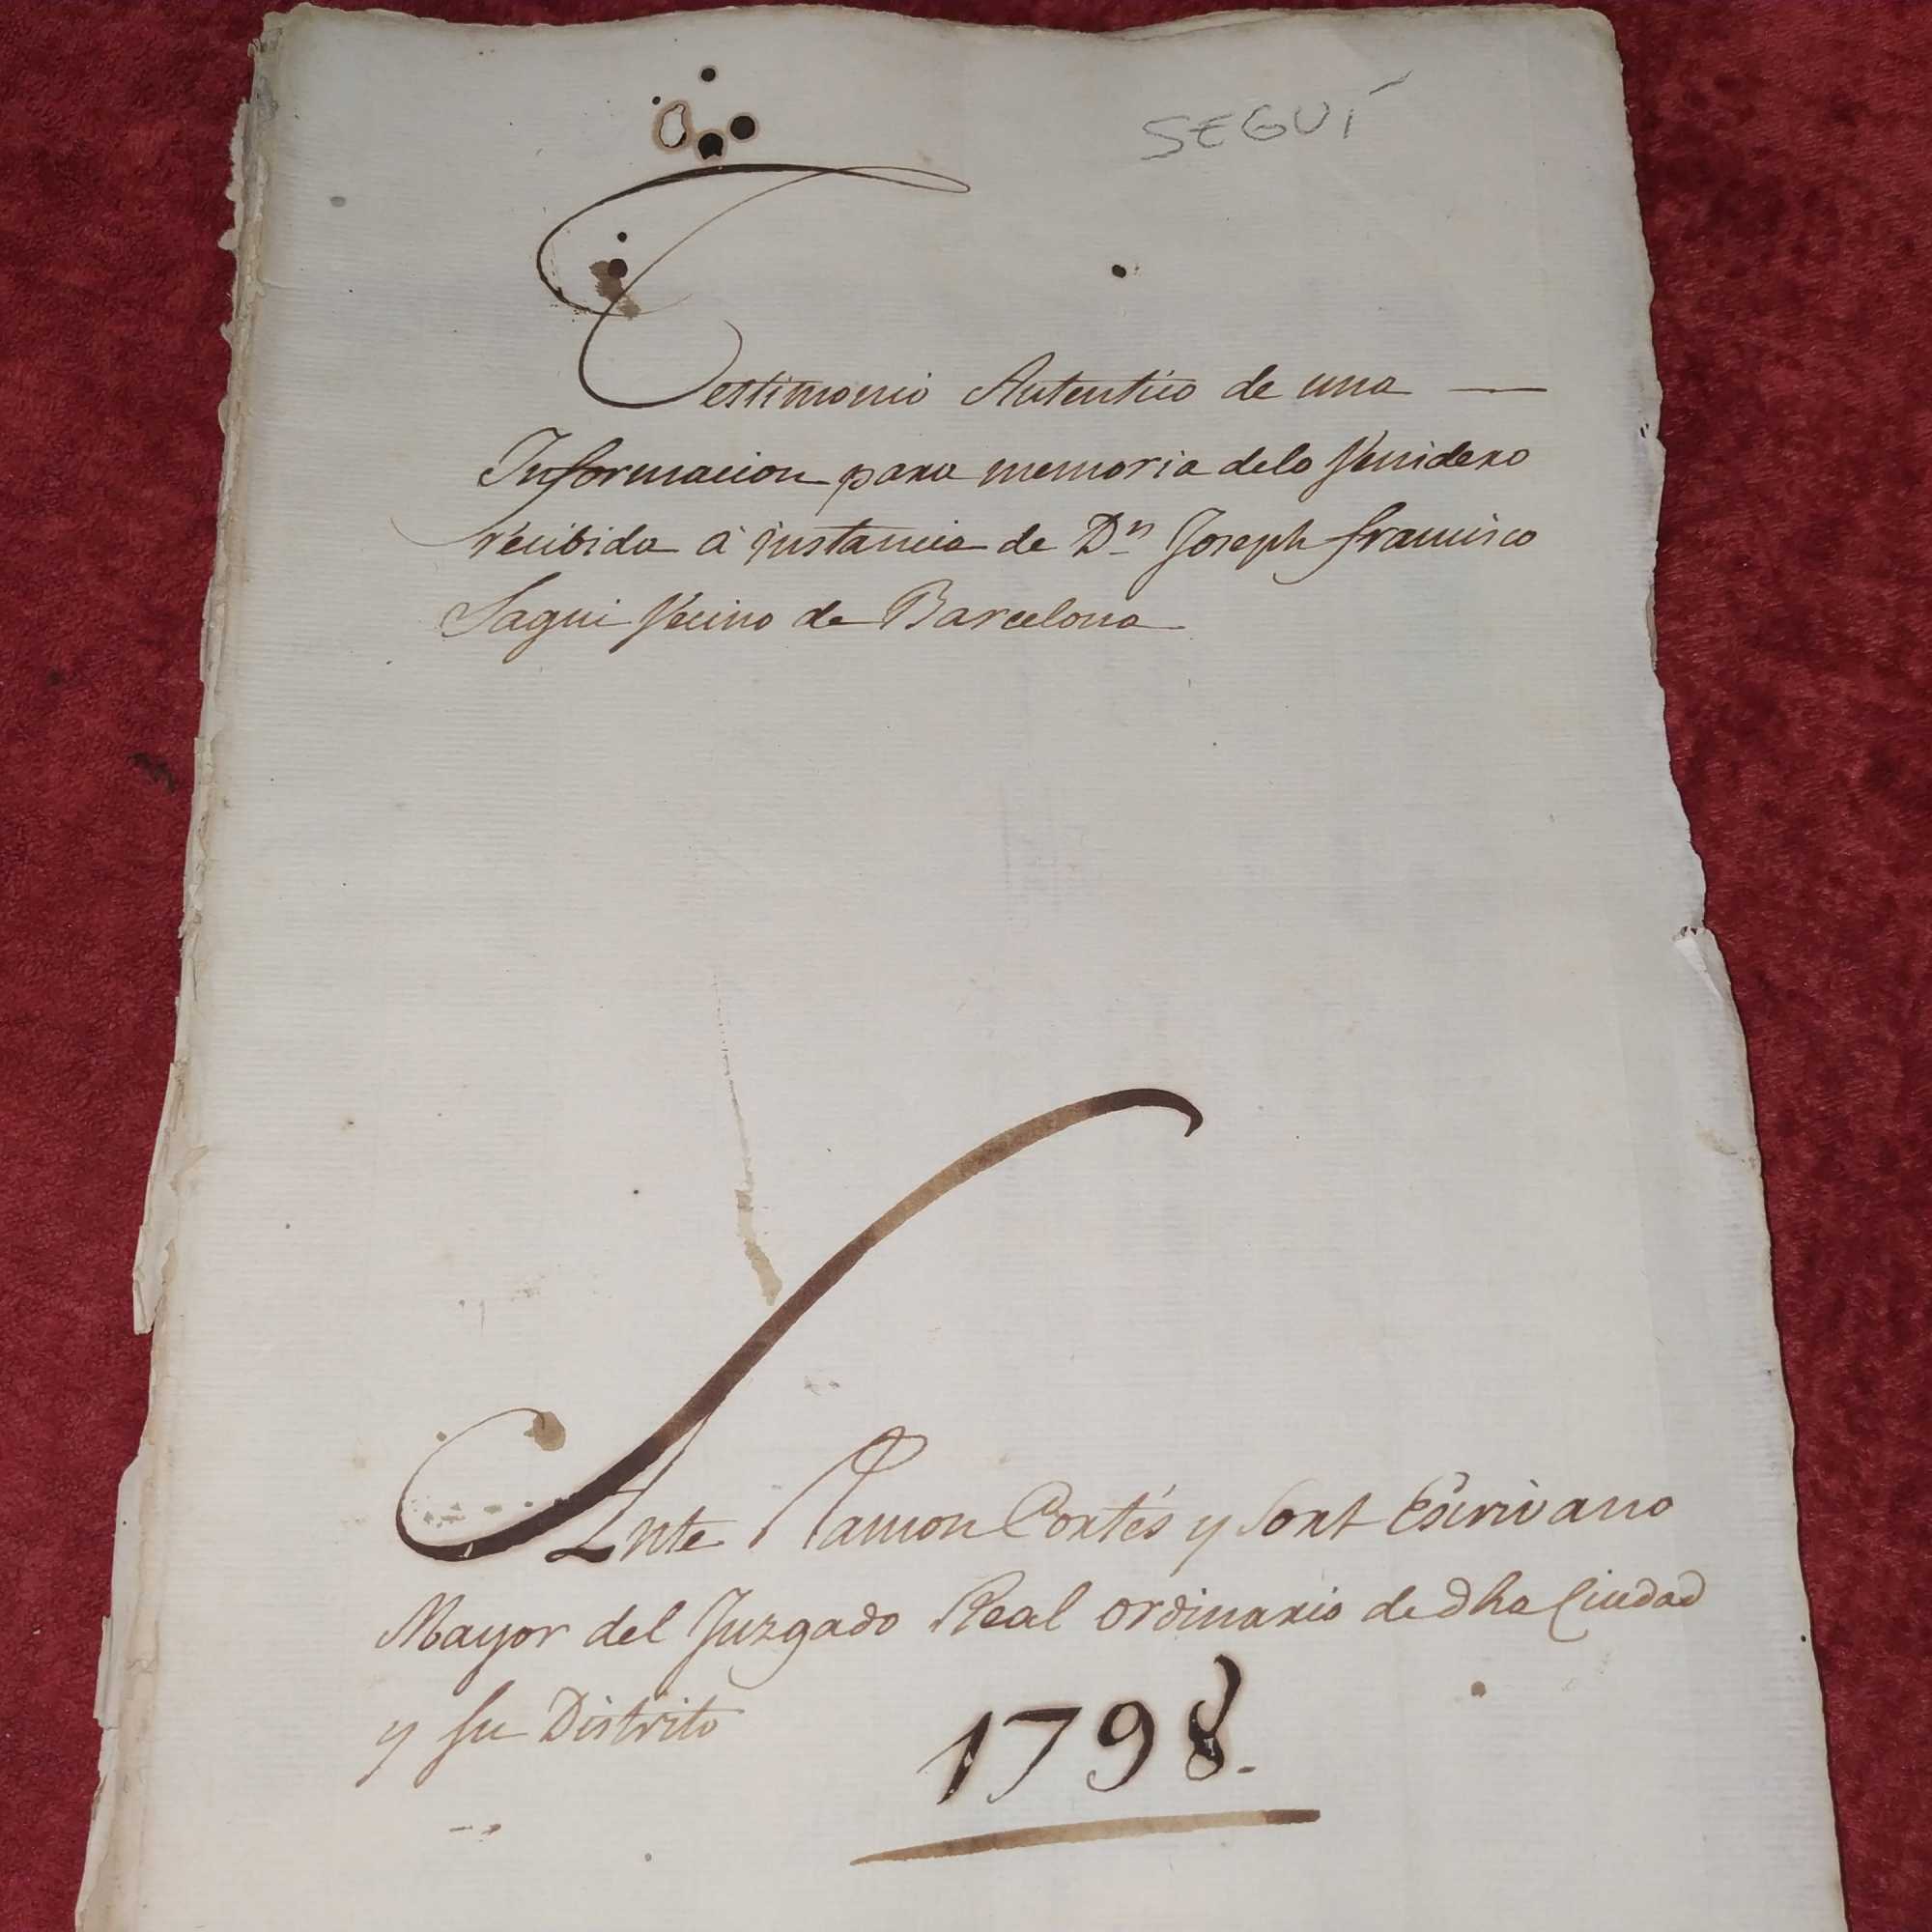 SEGUÍ
Testimonio Autentico de una
Informacion para memoria delo Venidero
recibida à instancia de Dn Joseph francisco
Sagui Vecino de Barcelona
Ante Ramon Cortés y Sort Escrivano
Mayor del Juzgado Real ordinario de dha Ciudad
y su Distrito
1798.